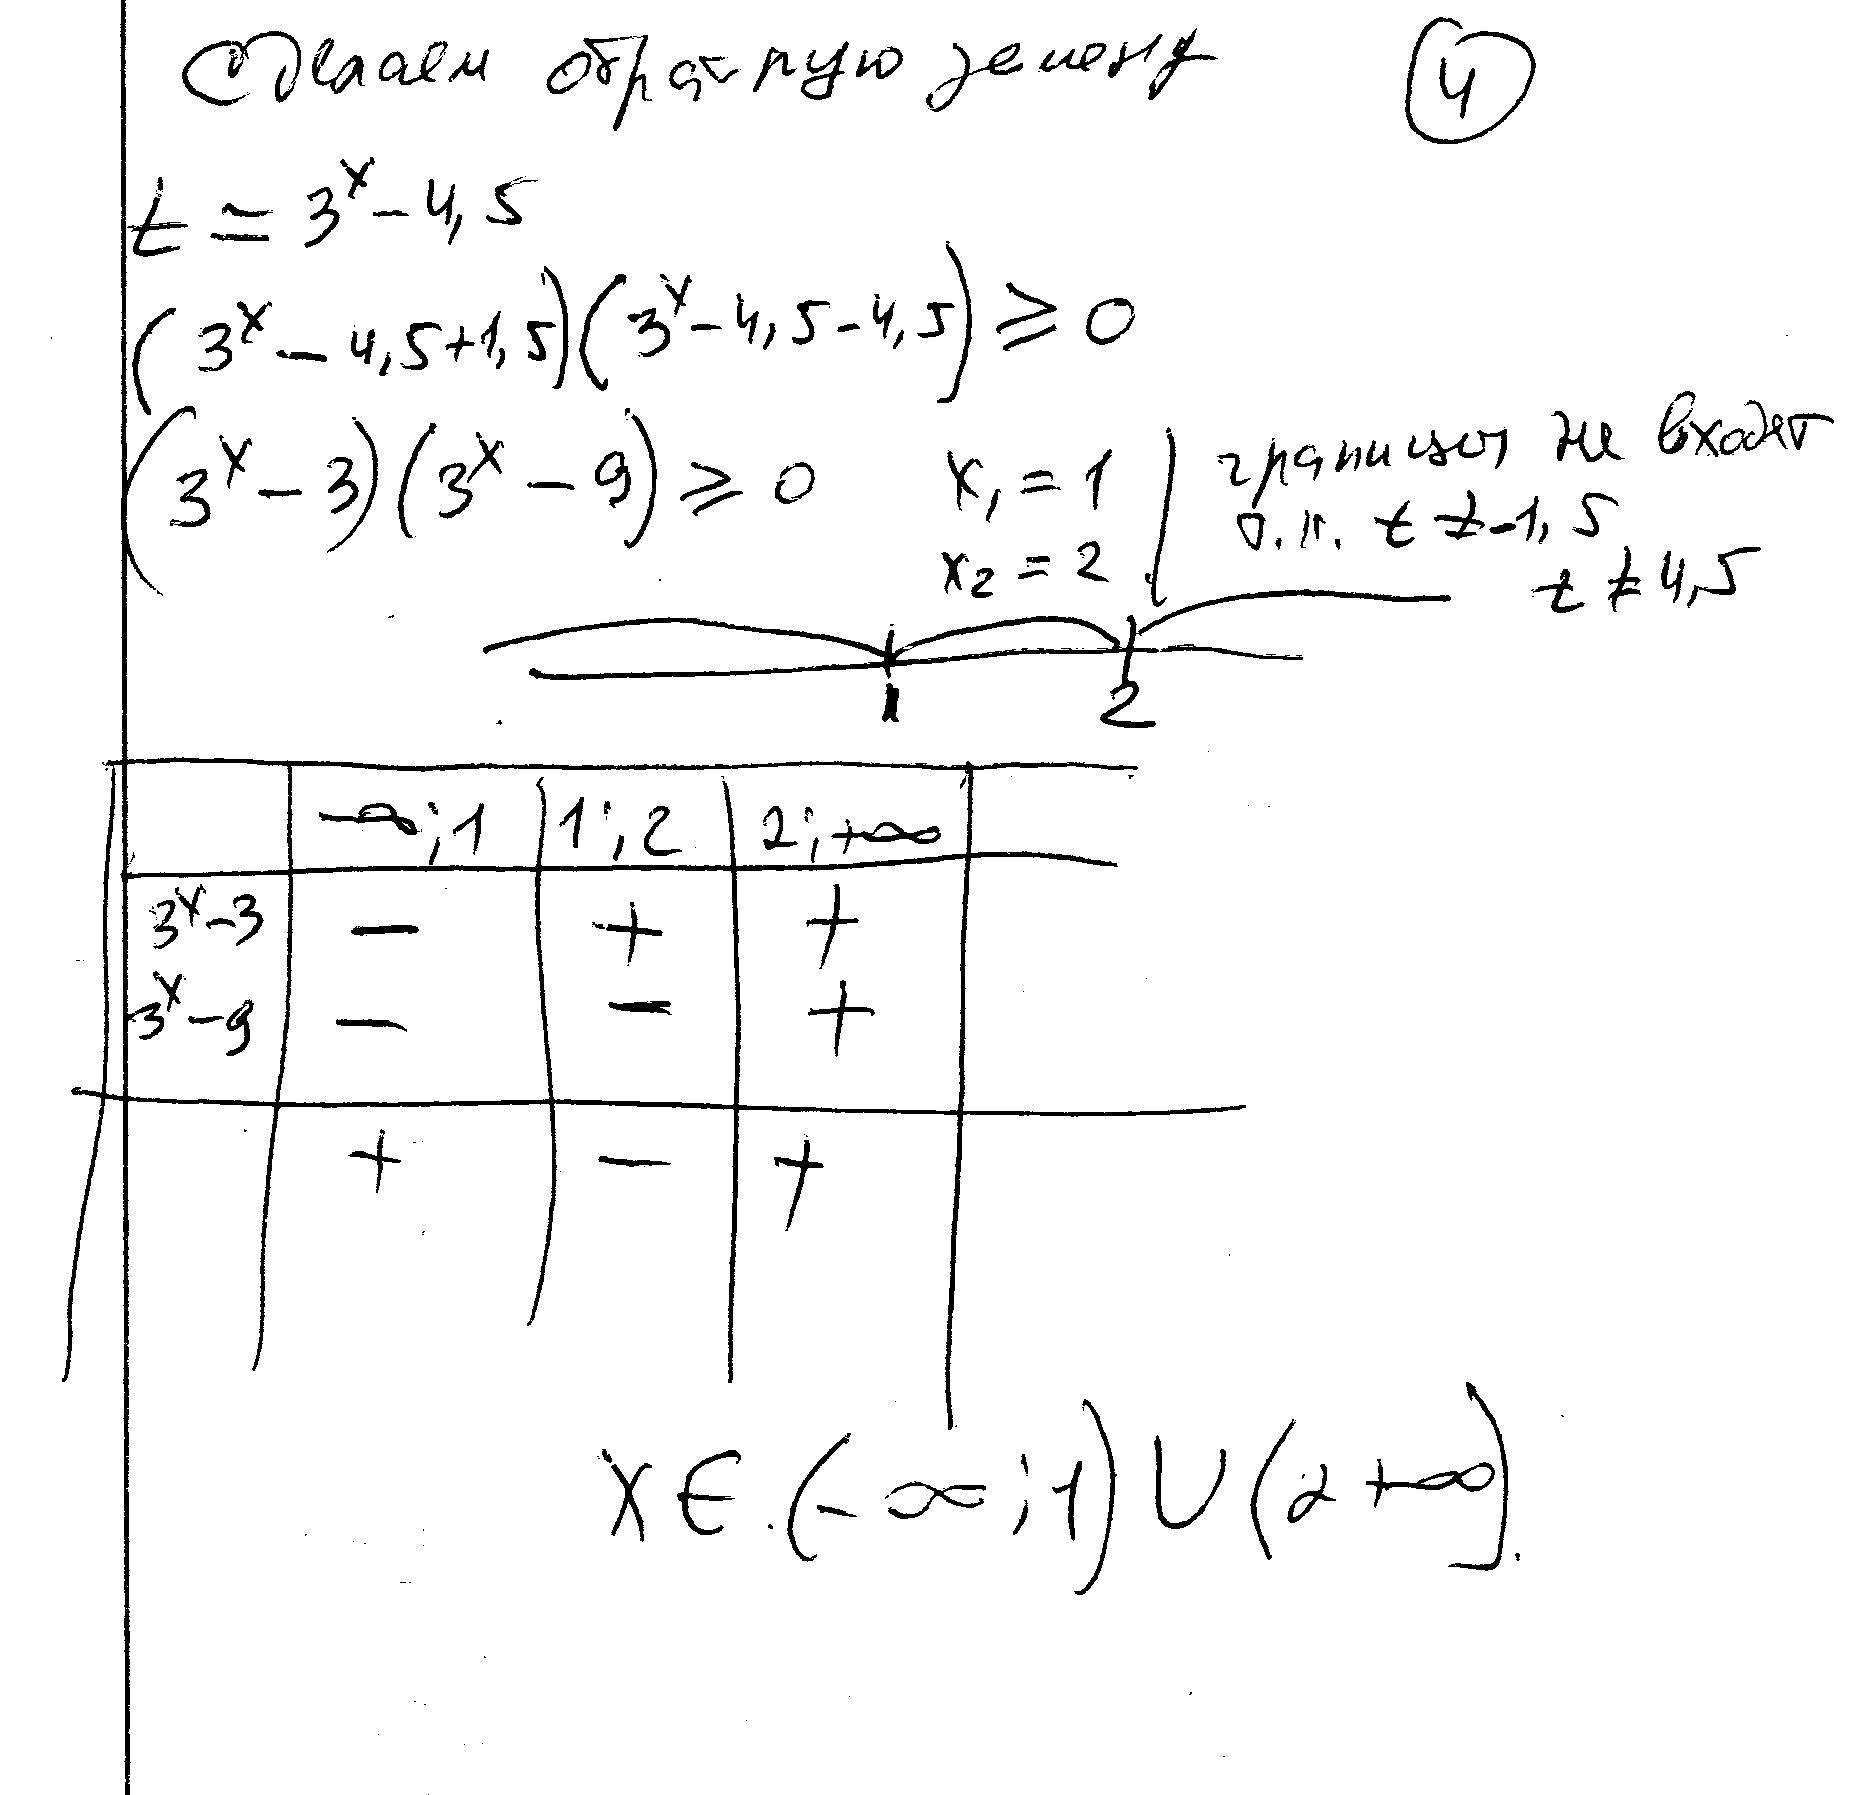 Сделаем обратную замену
4
t = 3^x - 4,5
(3^x - 4,5+1,5)(3^x - 4,5 - 4,5) ⩾ 0
(3^x - 3)(3^x - 9) ⩾ 0
x₁ = 1
x₂ = 2
границы не входят
т.к. t ≠ -1,5
t ≠ 4,5
1 2
-∞;1 1;2 2;+∞
3^x-3 - + +
3^x-9 - - +
+ - +
x ∈ (-∞;1) ∪ (2 +∞].